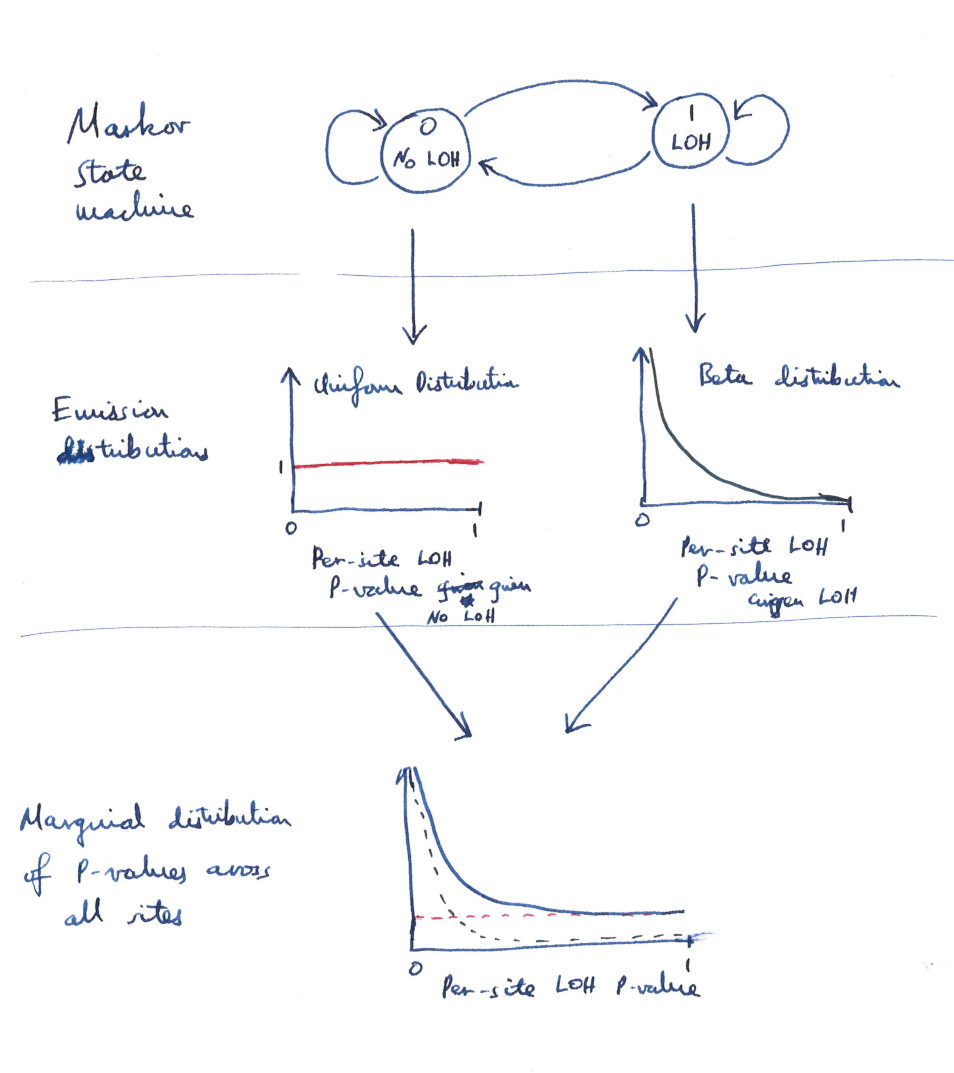 Markov
state
machine
0
No LOH
1
LOH
Emission
distributions
Uniform Distribution
1
0
1
Per-site LOH
P-value given
No LOH
Beta distribution
0
1
Per-site LOH
P-value
given LOH
Marginal distribution
of P-values across
all sites
0
1
Per-site LOH P-value